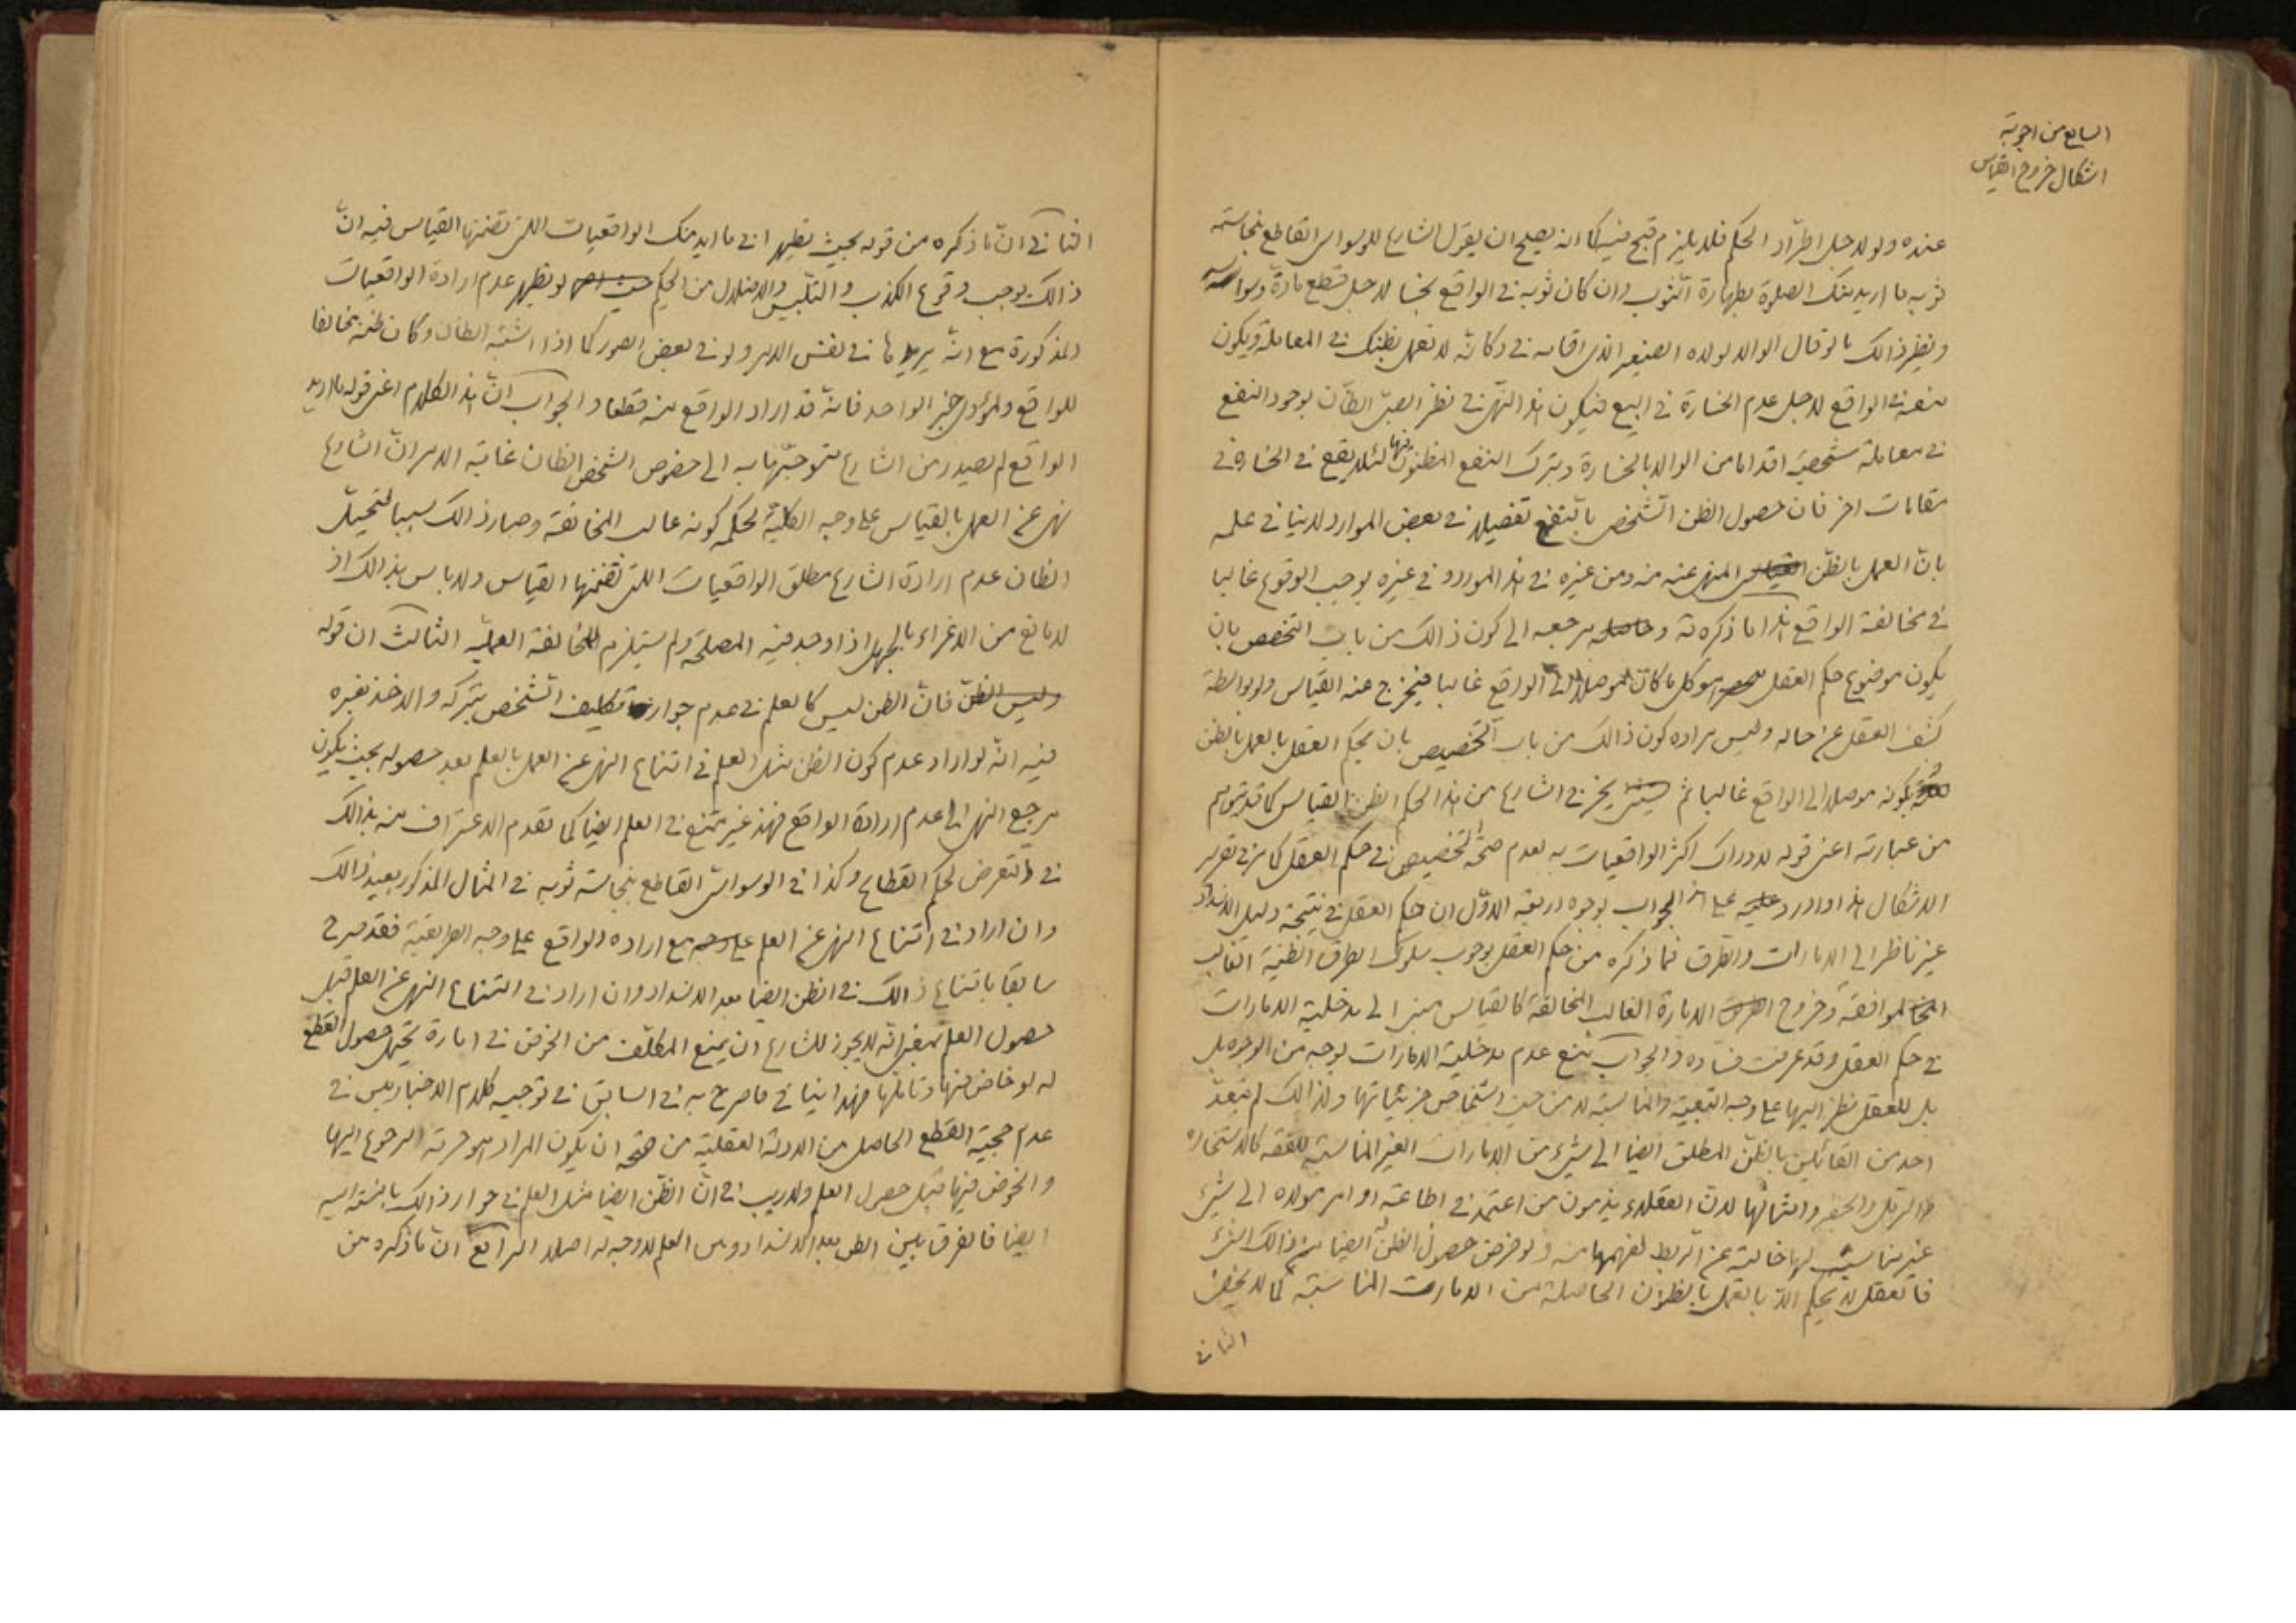 السابع من اجوبة
اشكال خروج القياس
عنده ولو لاجل اطراد الحكم فلا يلزم قبح فيه كما انه يصح ان يقول الشارع للوسواس القاطع بنجاسة
ثوبه ما اريد منك الصلوة بطهارة الثوب وان كان ثوبه في الواقع نجسا لاجل قطع مادة وسواسه
ونظير ذالك ما لو قال الوالد لولده الصغير الذى اقامه في دكانه لا تعمل بظنك في المعاملة ويكون
منعه في الواقع لاجل عدم الخسارة في البيع فيكون هذا النهى في نظر الصبى الظان بوجود النفع
في معاملة شخصية اقداما من الوالد بالخسارة وبترك النفع المظنون فيها لئلا يقع في الخسارة في
مقامات اخر فان حصول الظن الشخصى بالنفع تفصيلا في بعض الموارد لا ينافي علمه
بان العمل بالظن القياسى المنهى عنه منه ومن غيره في هذا المورد وفي غيره يوجب الوقوع غالبا
في مخالفة الواقع هذا ما ذكره ته وحاصله مرجعه الى كون ذالك من باب التخصص بان
يكون موضوع حكم العقل هو كل ما كان موصلا الى الواقع غالبا فيخرج عنه القياس ولو بواسطة
كشف العقل عن حاله وليس مراده كون ذالك من باب التخصيص بان يحكم العقل بالعمل بالظن
بكونه موصلا الى الواقع غالبا ثم يخرج الشارع من هذا الحكم الظن القياسى كما قد يتوهم
من عبارته اعنى قوله لادراك اكثر الواقعيات به لعدم صحة التخصيص في حكم العقل كما مر في تقرير
الاشكال هذا واورد عليه على هذا الجواب بوجوه اربعة الاول ان حكم العقل في نتيجة دليل الانسداد
غير ناظر الى الامارات والطرق فما ذكره من حكم العقل بوجوب سلوك الطرق الظنية الغالب
الموافقة وخروج الامارة الغالب المخالفة كالقياس مبنى الى مدخلية الامارات
في حكم العقل وقد عرفت فساده والجواب بمنع عدم مدخلية الامارات بوجه من الوجوه بل
بل للعقل نظر اليها على وجه التبعية والمناسبة لا من حيث اشخاص جزئياتها ولذالك لم يتعد
احد من القائلين بالظن المطلق ايضا الى شىء من الامارات الغير المناسبة للفقه كالاستخارة
والرمل والجفر وامثالها لان العقلاء يذمون من اعتمد في اطاعة اوامر مولاه الى شىء
غير مناسب لها خالية عن الربط لفهمها منه ولو فرض حصول الظن ايضا من ذالك الشىء
فالعقل لا يحكم الا بالعمل بالظنون الحاصلة من الامارات المناسبة كما لا يخفى
الثاني
الثاني ان ما ذكره من قوله بحيث يظهر اني ما اريد منك الواقعيات اللتى تضمنها القياس فيه ان
ذالك يوجب وقوع الكذب والتلبيس والاضلال من الحكيم لو يظهر عدم ارادة الواقعيات
المذكورة مع انه يريدها في نفس الامر ولو في بعض الصور كما اذا اشتبه الظان وكان ظنه مخالفا
للواقع ولمؤدى خبر الواحد فانه قد اراد الواقع منه قطعا والجواب ان هذا الكلام اعنى قوله ما اريد
الواقع لم يصدر من الشارع متوجها به الى خصوص الشخص الظان غاية الامر ان الشارع
نهى عن العمل بالقياس على وجه الكلية لحكمة كونه غالب المخالفة وصار ذالك سببا لتخيل
الظان عدم ارادة الشارع مطلق الواقعيات اللتى تضمنها القياس ولا باس بذالك اذ
لا مانع من الاغراء بالجهل اذا وجد فيه المصلحة ولم يستلزم المخالفة العملية الثالث ان قوله
وليس الظن فان الظن ليس كالعلم في عدم جواز تكليف الشخص بتركه والاخذ بغيره
فيه انه لو اراد عدم كون الظن مثل العلم في امتناع النهى عن العمل بالعلم بعد حصوله بحيث يكون
مرجع النهى الى عدم ارادة الواقع فهذا غير ممتنع في العلم ايضا كما تقدم الاعتراف منه بذالك
في التعرض لحكم القطاع وكذا في الوسواس القاطع بنجاسة ثوبه في المثال المذكور بعيد ذالك
وان اراد في امتناع النهى عن العلم على وجه مع ارادة الواقع على وجه الطريقية فقد صرح
سابقا بامتناع ذالك في الظن ايضا بعد الانسداد وان اراد في امتناع النهى عن العلم قبل
حصول العلم بمعنى انه لا يجوز للشارع ان يمنع المكلف من الخوض في امارة يحتمل حصول القطع
له لو خاض فيها وتاملها فهذا ينافي ما صرح به في السابق في توجيه كلام الاخباريين في
عدم حجية القطع الحاصل من الادلة العقلية من صحة ان يكون المراد هو حرمة الرجوع اليها
والخوض فيها قبل حصول العلم ولا ريب في ان الظن ايضا مثل العلم في جواز ذالك بالنسبة اليه
ايضا فالفرق بين الظن بعد الانسداد وبين العلم لا وجه له اصلا الرابع ان ما ذكره من